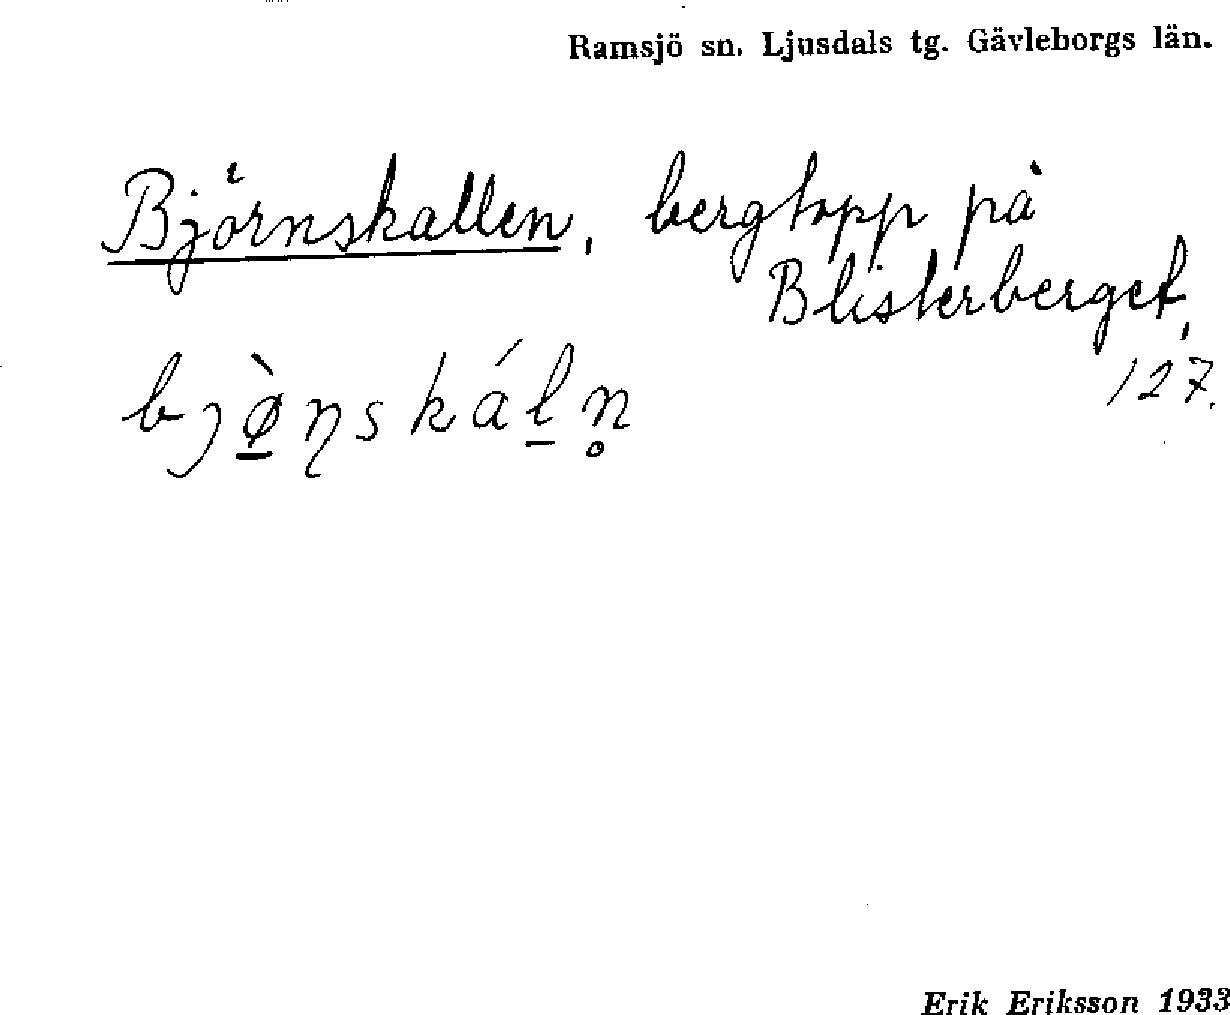 Ramsjö sn. Ljusdals tg. Gävleborgs län.
Björnskallen, bergtopp på
Blisterberget,
127.
bjø̲̀ŋskál̲n̥
Erik Eriksson 1933